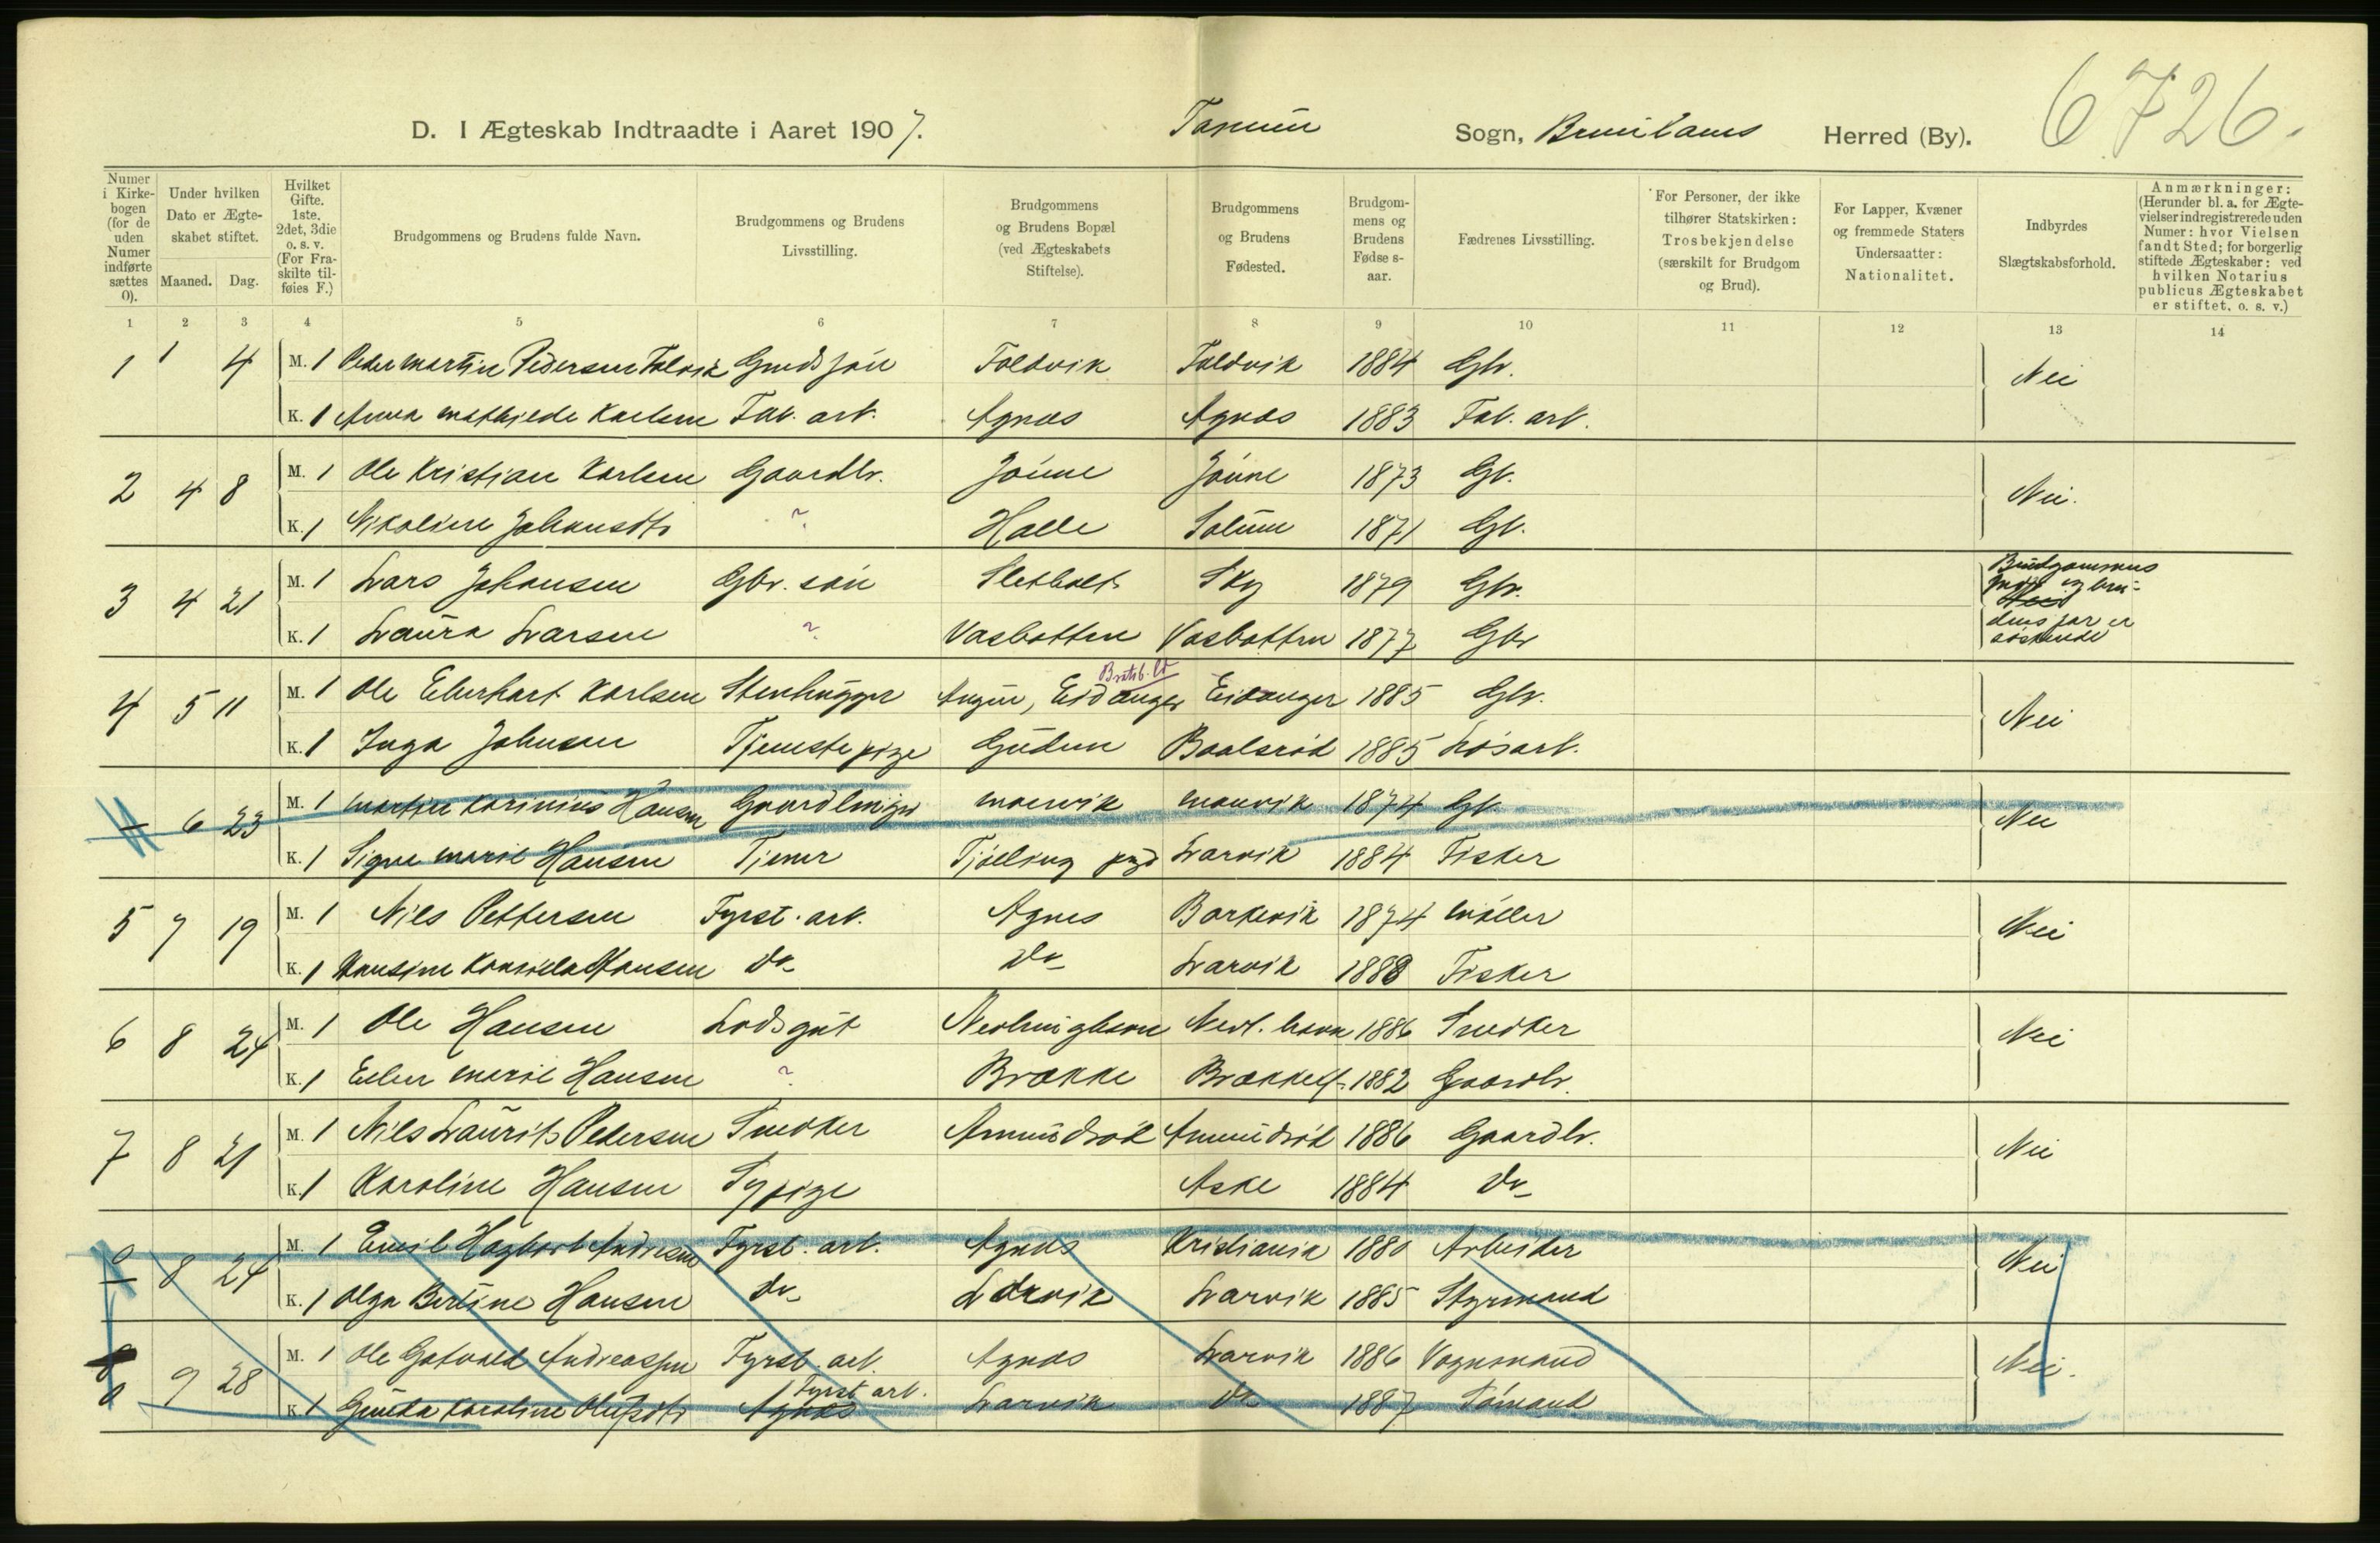 6726.
D. I Ægteskab Indtraadte i Aaret 1907. Tanum Sogn, Brunlanes Herred (By).
Numer i Kirkebogen (for de uden Numer indførte sættes 0).
Under hvilken Dato er Ægteskabet stiftet.
Maaned. Dag.
Hvilket Gifte. 1ste. 2det, 3die o. s. v. (For Fraskilte tilføies F.)
Brudgommens og Brudens fulde Navn.
Brudgommens og Brudens Livsstilling.
Brudgommens og Brudens Bopæl (ved Ægteskabets Stiftelse).
Brudgommens og Brudens Fødested.
Brudgommens og Brudens Fødse s-aar.
Fædrenes Livsstilling.
For Personer, der ikke tilhører Statskirken: Trosbekjendelse (særskilt for Brudgom og Brud).
For Lapper, Kvæner og fremmede Staters Undersaatter: Nationalitet.
Indbyrdes Slægtskabsforhold.
Anmærkninger: (Herunder bl. a. for Ægtevielser indregistrerede uden Numer: hvor Vielsen fandt Sted; for borgerlig stiftede Ægteskaber: ved hvilken Notarius publicus Ægteskabet er stiftet, o. s. v.)
1 2 3 4 5 6 7 8 9 10 11 12 13 14
1 1 4 M. 1 Peder Martin Pedersen Foldvik Gmds søn Foldvik Foldvik 1884 Gbr. Nei
K. 1 Anna Mathilde Karlsen Fab. arb. Agnæs Agnæs 1883 Fab. arb.
2 4 8 M. 1 Ole Kristian Karlsen Gaardbr. Jóune Jóune 1873 Gb. Nei.
K. 1 Nikoline Johansdtr ? Halle Solum 1871 Gb.
3 4 21 M. 1 Lars Johansen Gbr. søn Sletholt Sky 1879 Gbr. Brudgommens mor og brudens far er søskende
K. 1 Laura Larsen ? Vasbotten Vasbotten 1877 Gbr
Bratsb. A
4 5 11 M. 1 Ole Eberhart Karlsen Stenhugger Eidanger Eidanger 1885 Gbr. Nei
K. 1 Inga Johnsen Tjenestepige Gudem Baalsrød 1885 Løsarb.
6 23 M. 1 Martin Karinius Hansen Gaardbruger Manvik Manvik 1874 Gb. Nei
K. 1 Signe Marie Hansen Tjener Tjølling pgd Larvik 1884 Fisker
5 7 19 M. 1 Nils Pettersen Fyrst. arb. Agnes Barkevik 1874 Møller Nei
K. 1 Hansine Hansen Do Do Larvik 1888 Fisker
6 8 24 M. 1 Ole Hansen Lodsgut Nevlunghavn Nevl. havn 1886 Snedker Nei
K. 1 Ellen Marie Hansen ? Brække Brække 1882 Gaardbr.
7 8 21 M. 1 Nils Laurits Pedersen Snedker Amundrød Amundrød 1886 Gaardbr. Nei
K. 1 Karoline Hansen Sypige Aske 1884 Do
0 8 24 M. 1 Emil Hagbart Andresen Fyrst. arb. Agnæs Kristiania 1880 Arbeider Nei
K. 1 Olga Bertine Hansen Do Larvik Larvik 1885 Styrmand
0 9 28 M. 1 Ole Gotvald Andreassen Fyrst. arb. Agnæs Larvik 1886 Vognmand Nei.
K. 1 Gunda Karoline Olufsdtr Agnæs Fyrst. arb. Larvik Do 1887 Sømand